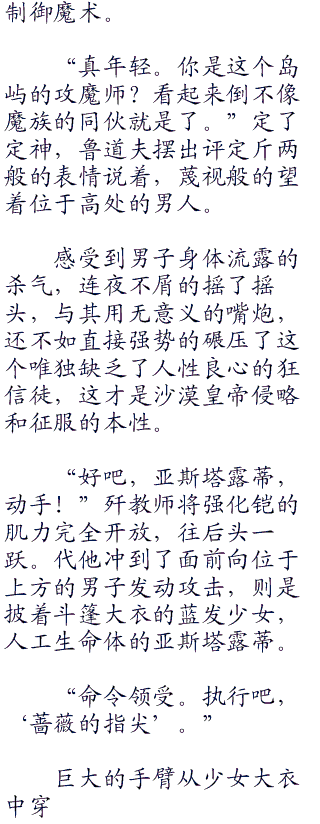 制御魔术。
“真年轻。你是这个岛
屿的攻魔师？看起来倒不像
魔族的同伙就是了。”定了
定神，鲁道夫摆出评定斤两
般的表情说着，蔑视般的望
着位于高处的男人。
感受到男子身体流露的
杀气，连夜不屑的摇了摇
头，与其用无意义的嘴炮，
还不如直接强势的碾压了这
个唯独缺乏了人性良心的狂
信徒，这才是沙漠皇帝侵略
和征服的本性。
“好吧，亚斯塔露蒂，
动手！”歼教师将强化铠的
肌力完全开放，往后头一
跃。代他冲到了面前向位于
上方的男子发动攻击，则是
披着斗篷大衣的蓝发少女，
人工生命体的亚斯塔露蒂。
“命令领受。执行吧，
‘蔷薇的指尖’。”
巨大的手臂从少女大衣
中穿